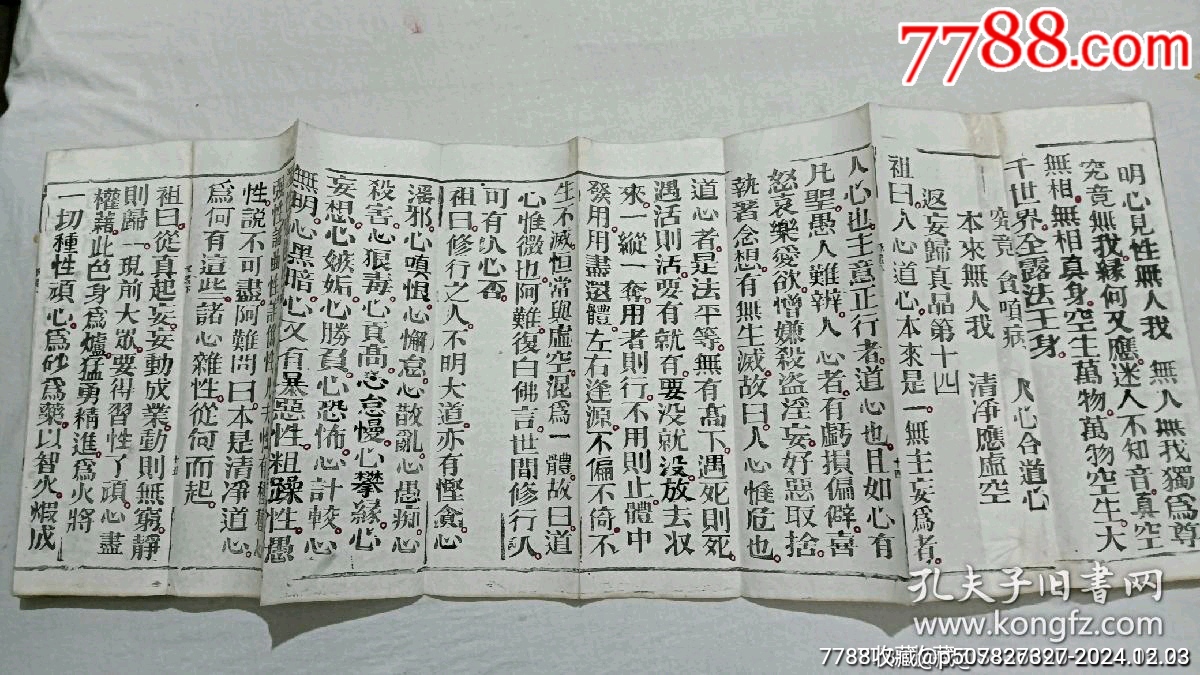 7788.com
明心見性無人我 無人無我獨為尊
究竟無我緣何又應迷人不知音真空
無相無相真身空生萬物萬物空生大
千世界全露法王身
究竟貪嗔病 人心合道心
本來無人我 清凈應虛空
返妄歸真品第十四
祖曰人心道心本來是一無主妄為者
人心也主意正行者道心也且如心有
凡聖愚人難辨人心者有虧損偏僻喜
怒哀樂愛欲憎嫌殺盜淫妄好惡取捨
執著念想有無生滅故曰人心惟危也
道心者是法平等無有高下遇死則死
遇活則活要有就有要没就没放去收
來一縱一奪用者則行不用則止體中
發用用盡還體左右逢源不偏不倚不
生不滅恒常與虛空混為一體故曰道
心惟微也阿難復白佛言世間修行人
可有人心否
祖曰修行之人不明大道亦有慳貪心
淫邪心嗔恨心懈怠心散亂心愚痴心
殺害心狼毒心貢高心怠慢心攀緣心
妄想心嫉妬心勝負心恐怖心計較心
無明心黑暗心又有暴惡性粗躁性愚
性說不可盡阿難問曰本是清凈道心
為何有這些諸心雜性從何而起
祖曰從真起妄妄動成業動則無窮靜
則歸一現前大眾要得習性了頑心盡
權藉此色身為爐猛勇精進為火將
一切種性頑心為砂為藥以智火煅成
孔夫子旧书网
www.kongfz.com
7788收藏@p507827327-2024.12.03